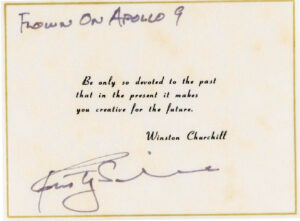 FLOWN ON APOLLO 9
Be only so devoted to the past
that in the present it makes
you creative for the future.
Winston Churchill